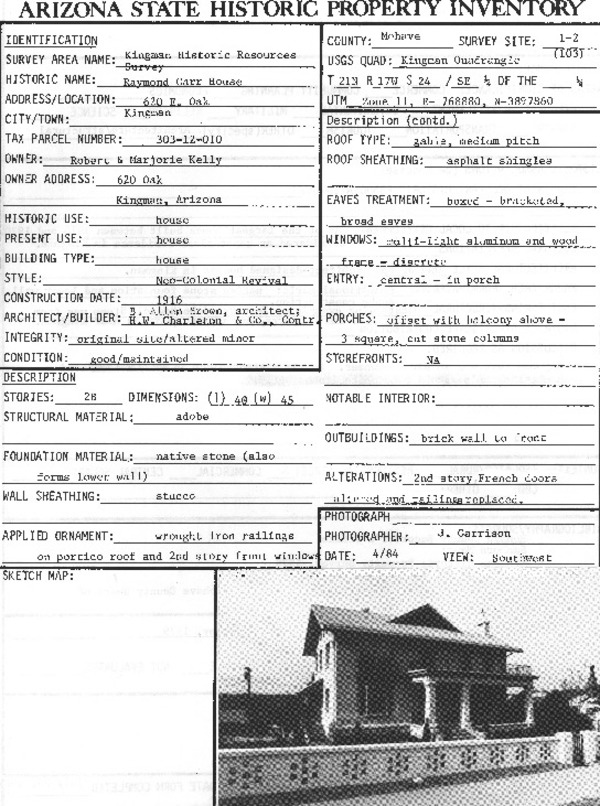 ARIZONA STATE HISTORIC PROPERTY INVENTORY
IDENTIFICATION
SURVEY AREA NAME: Kingman Historic Resources
Survey
HISTORIC NAME: Raymond Carr House
ADDRESS/LOCATION: 620 E. Oak
CITY/TOWN: Kingman
TAX PARCEL NUMBER: 303-12-010
OWNER: Robert & Marjorie Kelly
OWNER ADDRESS: 620 Oak
Kingman, Arizona
HISTORIC USE: house
PRESENT USE: house
BUILDING TYPE: house
STYLE: Neo-Colonial Revival
CONSTRUCTION DATE: 1916
ARCHITECT/BUILDER: B. Allen Brown, architect;
H.W. Charleton & Co., Contr.
INTEGRITY: original site/altered minor
CONDITION: good/maintained
COUNTY: Mohave SURVEY SITE: 1-2
(103)
USGS QUAD: Kingman Quadrangle
T 21N R 17W S 24 / SE ¼ OF THE ¼
UTM Zone 11, E- 768880, N-3897860
Description (contd.)
ROOF TYPE: gable, medium pitch
ROOF SHEATHING: asphalt shingles
EAVES TREATMENT: boxed - bracketed,
broad eaves
WINDOWS: multi-light aluminum and wood
frame - discrete
ENTRY: central - in porch
PORCHES: offset with balcony above -
3 square, cut stone columns
STOREFRONTS: NA
DESCRIPTION
STORIES: 2B DIMENSIONS: (l) 40 (w) 45
STRUCTURAL MATERIAL: adobe
FOUNDATION MATERIAL: native stone (also
forms lower wall)
WALL SHEATHING: stucco
APPLIED ORNAMENT: wrought iron railings
on portico roof and 2nd story front windows
NOTABLE INTERIOR:
OUTBUILDINGS: brick wall to front
ALTERATIONS: 2nd story French doors
altered and railings replaced.
PHOTOGRAPH
PHOTOGRAPHER: J. Garrison
DATE: 4/84 VIEW: Southwest
SKETCH MAP: